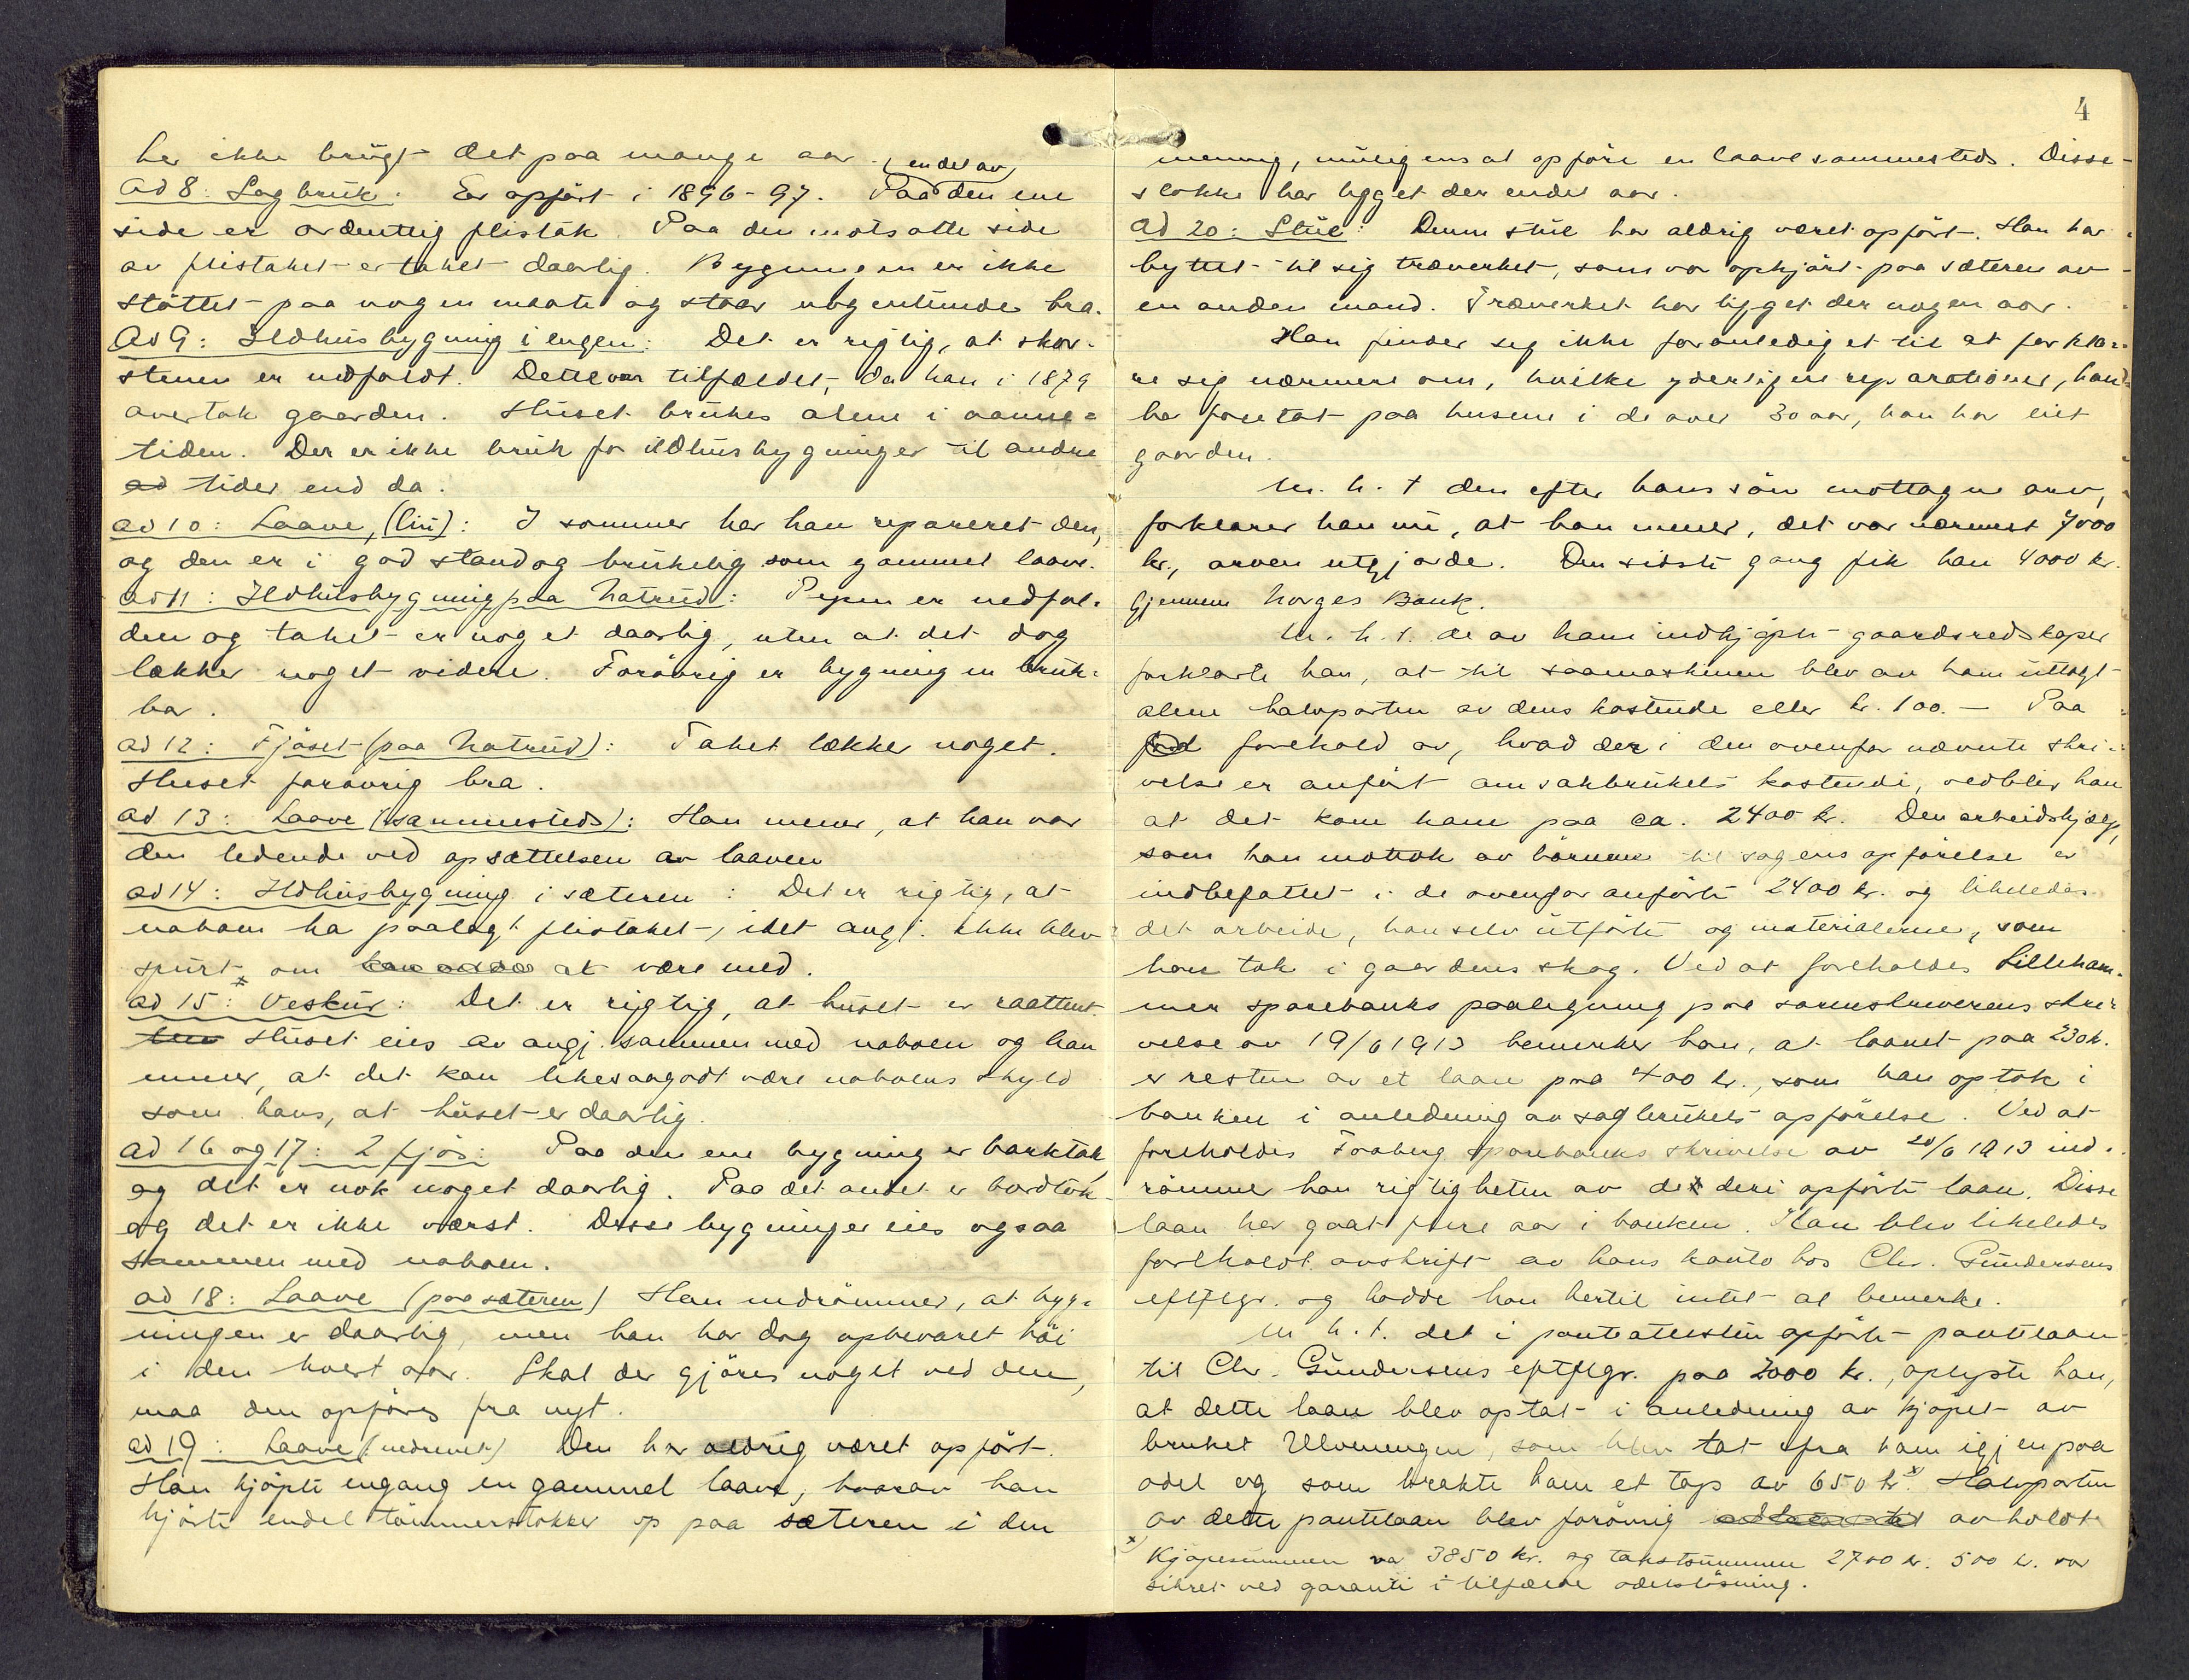 har ikke brugt det paa mange aar.
endel av
ad 8: Sagbruk: Er opført i 1896-97. Paa den ene
side er ordentlig flistak. Paa den motsatte side
av flistaket er taket daarlig. Bygningen er ikke
støttet paa nogen maate og staar utgentünde bra.
Ad 9: Ildhusbygning i engen: Det er rigtig, at skor-
stenen er nedfaldt. Dette var tilfældet, da han i 1879
overtok gaarden. Huset brukes alene i aanne-
tiden. Der er ikke bruk for ildhusbygninger til andre
ad tider end da.
ad 10: Laave, (lin): I sommer har han reparert den,
og den er i god stand og brukelig som gammel laave.
ad 11: Ildhusbygning paa Natrud: Pipen er nedfal-
den og taket er noget daarlig, uten at det dog
lækker noget videre. Forøvrig er bygningen bruk-
bar.
ad 12: Fjøset (paa Natrud): Taket lækker noget.
Huset forøvrig bra.
ad 13: Laave (sammesteds): Han mener, at han var
den ledende ved opsættelsen av laaven
ad 14: Ildhusbygning i sæteren: Det er rigtig, at
naboen ha paalagt flistaket, idet angj. ikke blev
spurt om at være med.
ad 15: Veskur: Det er rigtig, at huset er raattent.
Huset eies av angj. sammen med naboen og han
mener, at det kan likesaagodt være naboens skyld
som hans, at huset er daarlig.
ad 16 og 17: 2 fjøs: Paa den ene bygning er barktak
og det er nok noget daarlig. Paa det andet er bordtak
og det er ikke værst. Disse bygninger eies ogsaa
sammen med naboen.
ad 18: Laave (paa sæteren) Han indrømmer, at byg-
ningen er daarlig, men han har dog opbevaret høi
i den hvert aar. Skal der gjøres noget ved den,
maa den opføres fra nyt.
ad 19: Laave (nedrevet) Den har aldrig været opført.
Han kjøpte engang en gammel laave, hvorav han
kjørte endel tømmerstokker op paa sæteren i den
4
mening, muligens at opføre en laave sammesteds. Disse
stokke har ligget der endel aar.
ad 20: Stue: Denne stue har aldrig været opført. Han har
byttet til sig træverket, som var opkjørt paa sæteren av
en anden mand. Træverket har ligget der nogen aar.
Han finder sig ikke foranlediget til at forkla-
re sig nærmere om, hvilke yderligere reparationer, han
har foretat paa husene i de over 30 aar, han har eiet
gaarden.
M. h. t den efter hans søn mottagne arv,
forklarer han nu, at han mener, det var nærmest 7000
kr., arven utgjorde. Den sidste gang fik han 4000 kr.
gjennem Norges Bank.
M. h. t. de av ham indkjøpte gaardsredskaper
forklarte han, at til saamaskinen blev av ham utlagt
alene halvparten av dens kostende eller kr. 100. — Paa
forehold av, hvad der i den ovenfor nævnte skri-
velse er anført om sakbrukets kostende, vedblev han
at det kom ham paa ca. 2400 kr. Den arbeidshjælp,
som han mottok av børnene til sagens opførelse er
indbefattet i de ovenfor anførte 2400 kr. og likeledes
det arbeide, han selv utførte og materialerne, som
han tok i gaardens skog. Ved at foreholdes Lilleham-
mer sparebanks paategning paa sorenskriverens skri-
velse av 19/6 1913 bemerker han, at laanet paa 230 k.
er resten av et laan paa 400 kr., som han optok i
banken i anledning av sagbrukets opførelse. Ved at
foreholdes Faaberg sparebanks skrivelse av 20/6 1913 ind-
rømmer han rigtigheten av de deri opførte laan. Disse
laan har gaat flere aar i banken. Han blev likeledes
foreholdt avskrift av hans konto hos Chr. Gundersens
eftflgr. og hadde han hertil intet at bemerke.
M h. t. det i panteattesten opførte pantelaan
til Chr. Gundersens eftflgr. paa 2000 kr., oplyste han,
at dette laan blev optat i anledning av kjøpet av
bruket Ulvenengen, som blev tat fra ham igjen paa
odel og som brakte ham et tap av 650 kr. x) Halvparten
av dette pantelaan blev forøvrig avholdt
x) Kjøpesummen var 3850 kr. og takstsummen 2700 kr. 500 kr. var
sikret ved garanti i tilfælde odelsløsning.